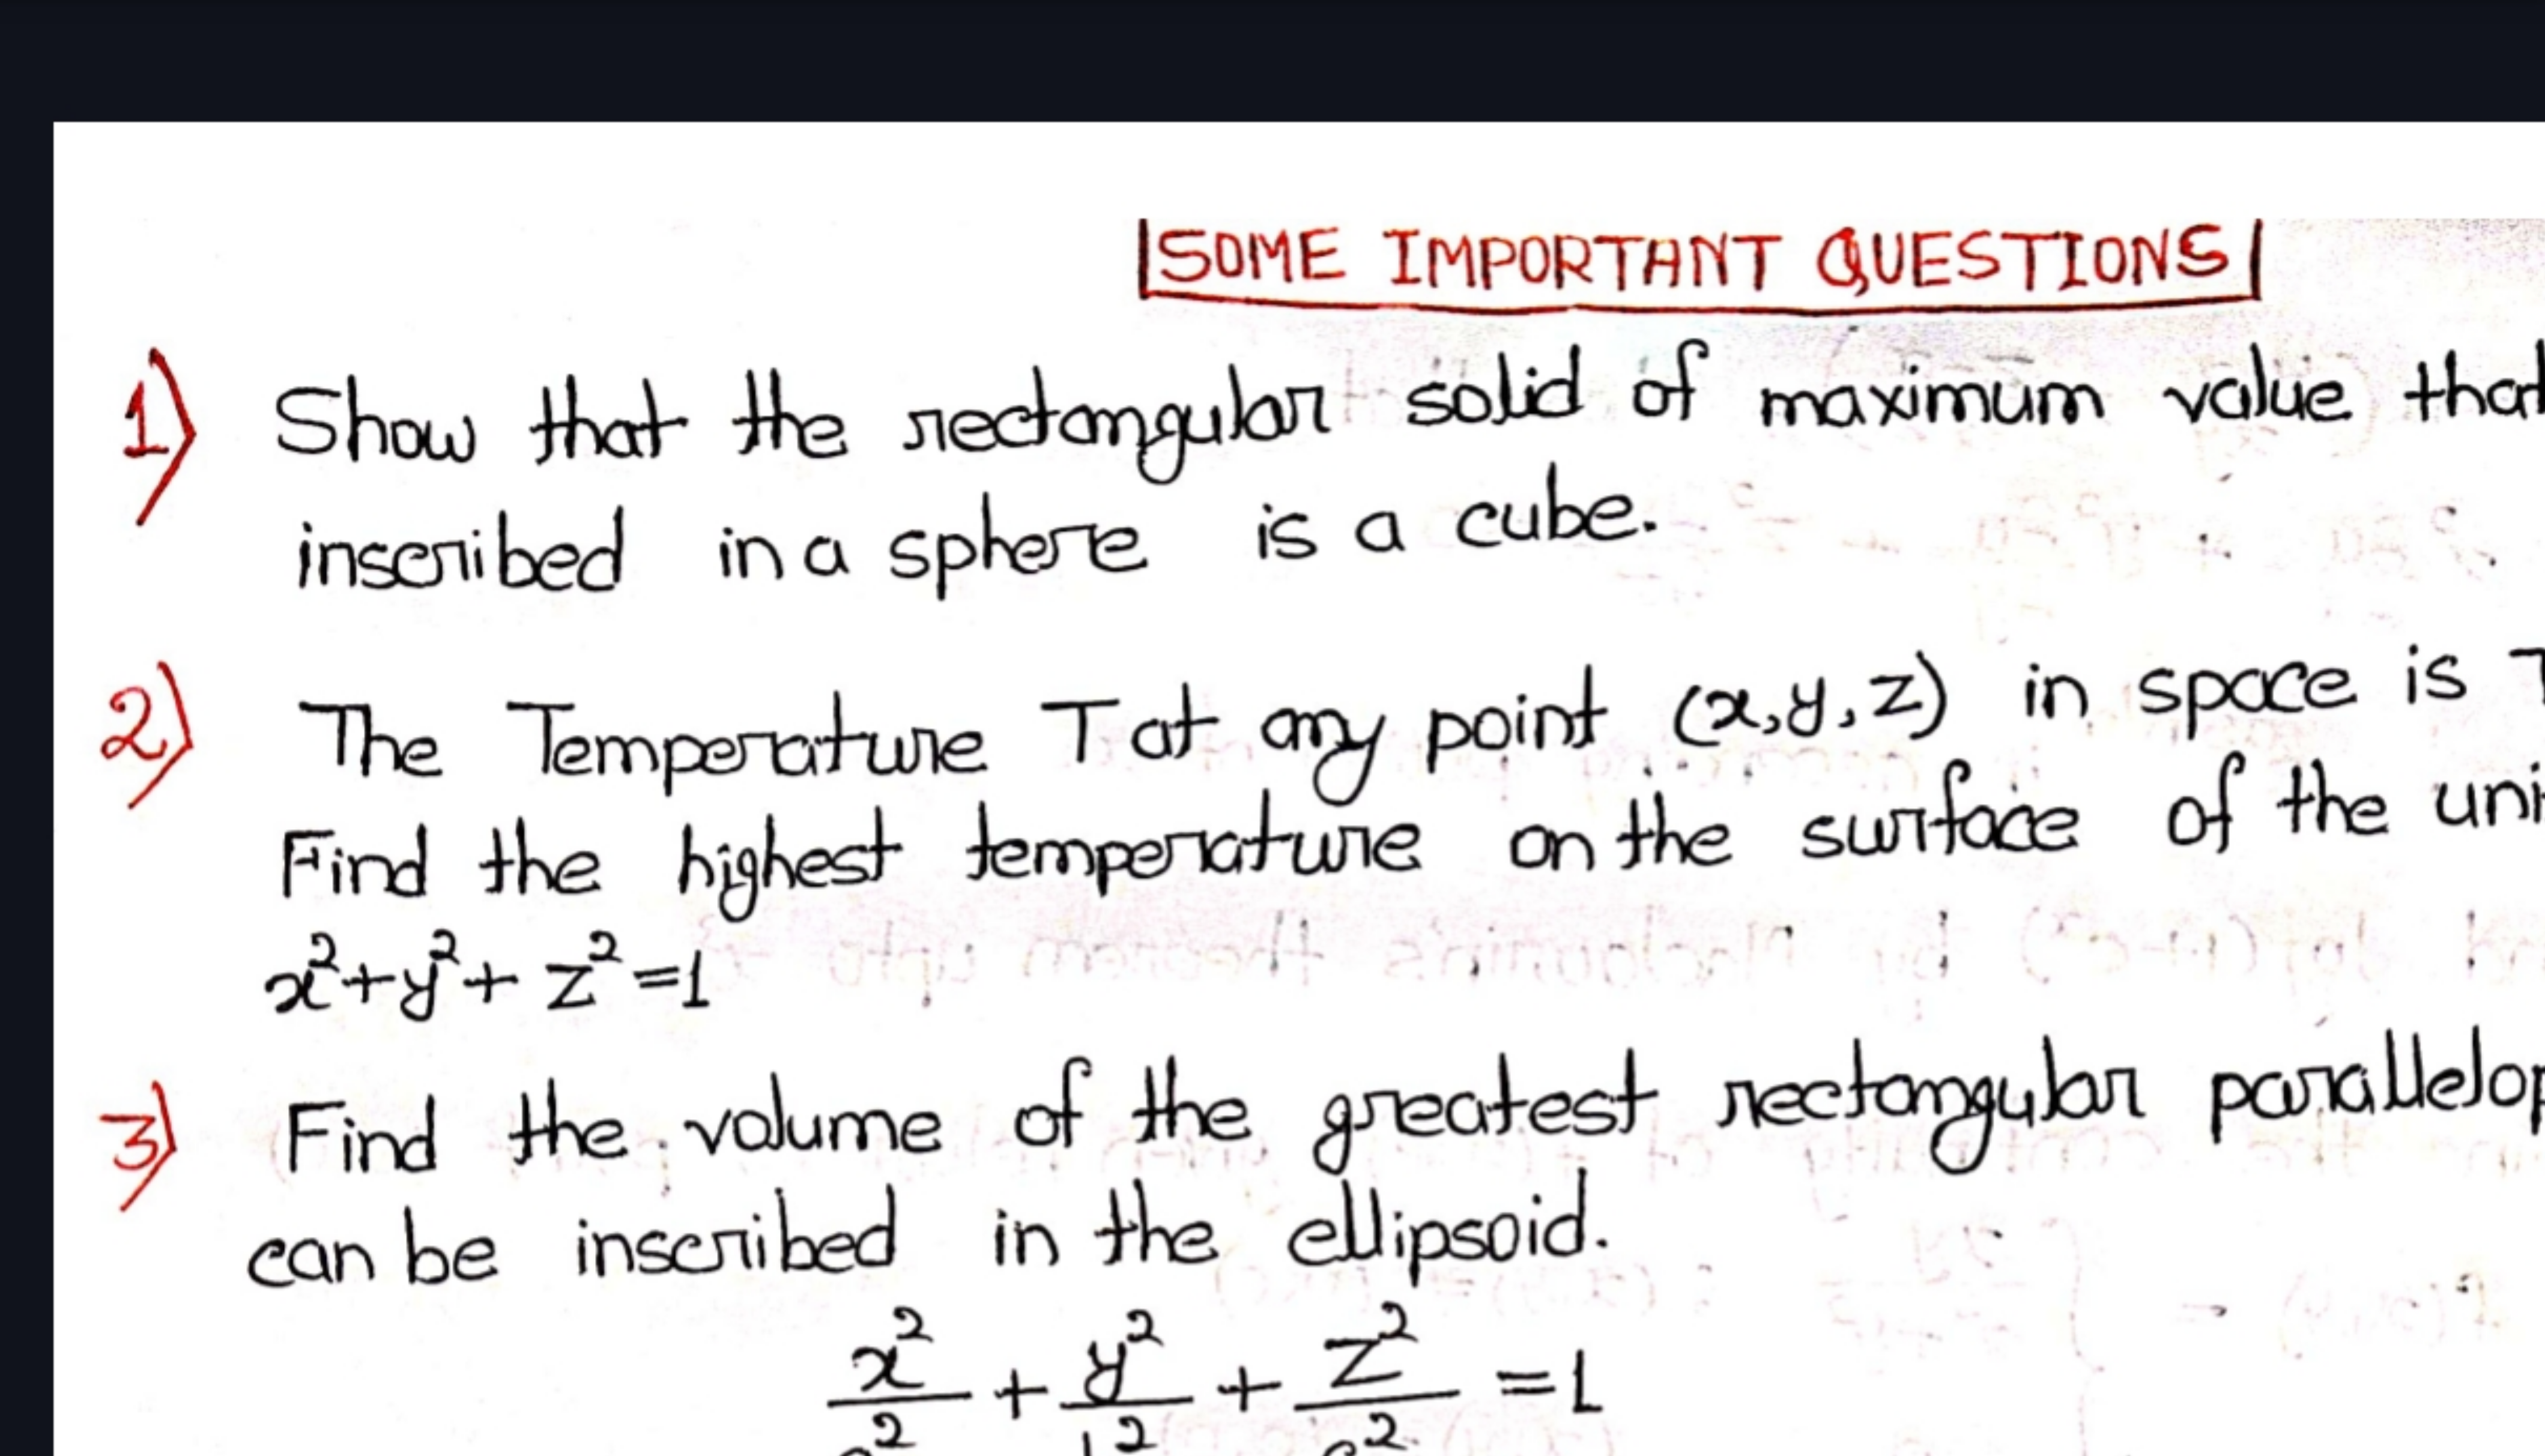 SOME IMPORTANT QUESTIONS
1) Show that the rectangular solid of maximum value that
inscribed in a sphere is a cube.
2) The Temperature T at any point (x,y,z) in space is
Find the highest temperature on the surface of the
x²+y²+ z²=1
3) Find the volume of the greatest rectangular
can be inscribed in the ellipsoid.
x²/a² + y²/b² + z²/c² =1